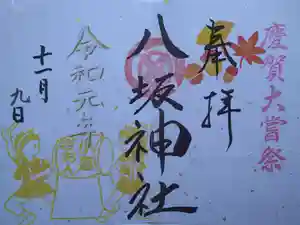 慶賀大嘗祭
奉拝
八坂神社
令和元年
十一月
九日